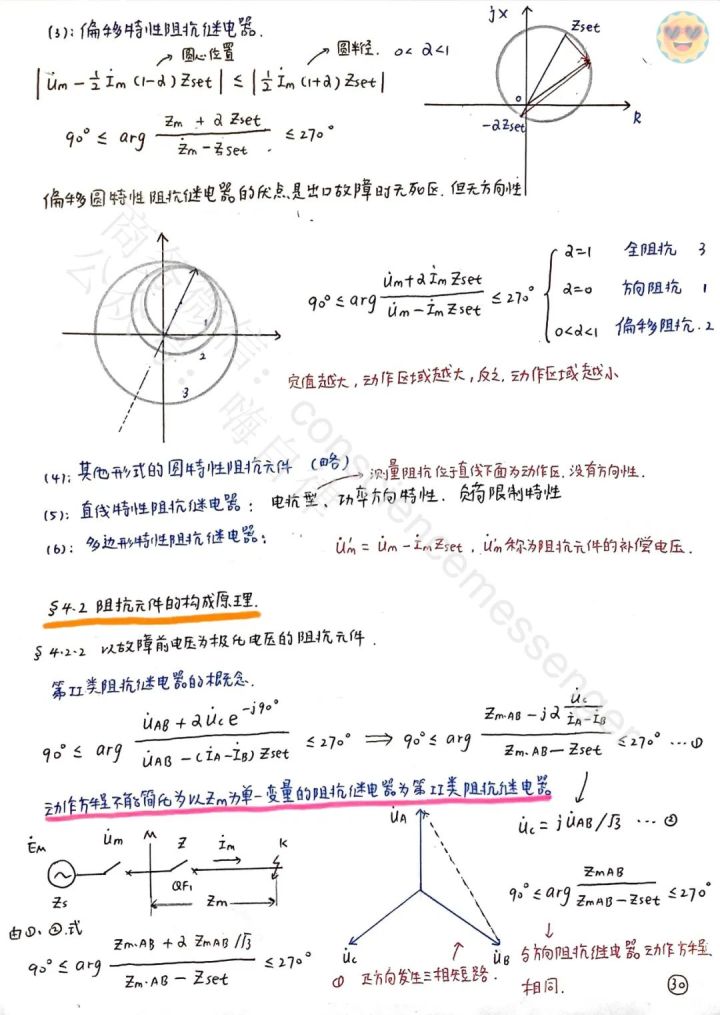 (3): 偏移特性阻抗继电器.
圆心位置
圆半径. 0<2<1
|U̇m - ½ İm (1-2) Zset| ≤ |½ İm (1+2) Zset|
90° ≤ arg (Zm + 2 Zset)/(Zm - Zset) ≤ 270°
jX
Zset
0
-2Zset
R
偏移圆特性阻抗继电器的优点是出口故障时无死区. 但无方向性
1
2
3
90° ≤ arg (U̇m + 2 İm Zset)/(U̇m - İm Zset) ≤ 270°
2=1 全阻抗 3
2=0 方向阻抗 1
0<2<1 偏移阻抗. 2
定值越大, 动作区域越大, 反之, 动作区域越小
(4): 其他形式的圆特性阻抗元件 (略)
测量阻抗位于直线下面为动作区. 没有方向性.
(5): 直线特性阻抗继电器: 电抗型、功率方向特性. 负荷限制特性
(6): 多边形特性阻抗继电器:
U̇m' = U̇m - İm Zset, U̇m'称为阻抗元件的补偿电压.
§4.2 阻抗元件的构成原理.
§ 4.2.2 以故障前电压为极化电压的阻抗元件.
第II类阻抗继电器的概念.
90° ≤ arg (U̇AB + 2U̇c e^-j90°)/(U̇AB - (İA-İB) Zset) ≤ 270° ⟹ 90° ≤ arg (Zm·AB - j2 U̇c/(İA-İB))/(Zm·AB - Zset) ≤ 270° ... ①
动作方程不能简化为以Zm为单一变量的阻抗继电器为第II类阻抗继电器
U̇c = jU̇AB/√3 ... ②
ĖM
U̇m
M
Z
İm
K
Zs
QF1
Zm
U̇A
U̇B
U̇c
① 正方向发生三相短路.
90° ≤ arg ZmAB/(ZmAB - Zset) ≤ 270°
与方向阻抗继电器动作方程
相同.
由①、②式
90° ≤ arg (Zm·AB + 2 ZmAB/√3)/(Zm·AB - Zset) ≤ 270°
30
consciencemessenger